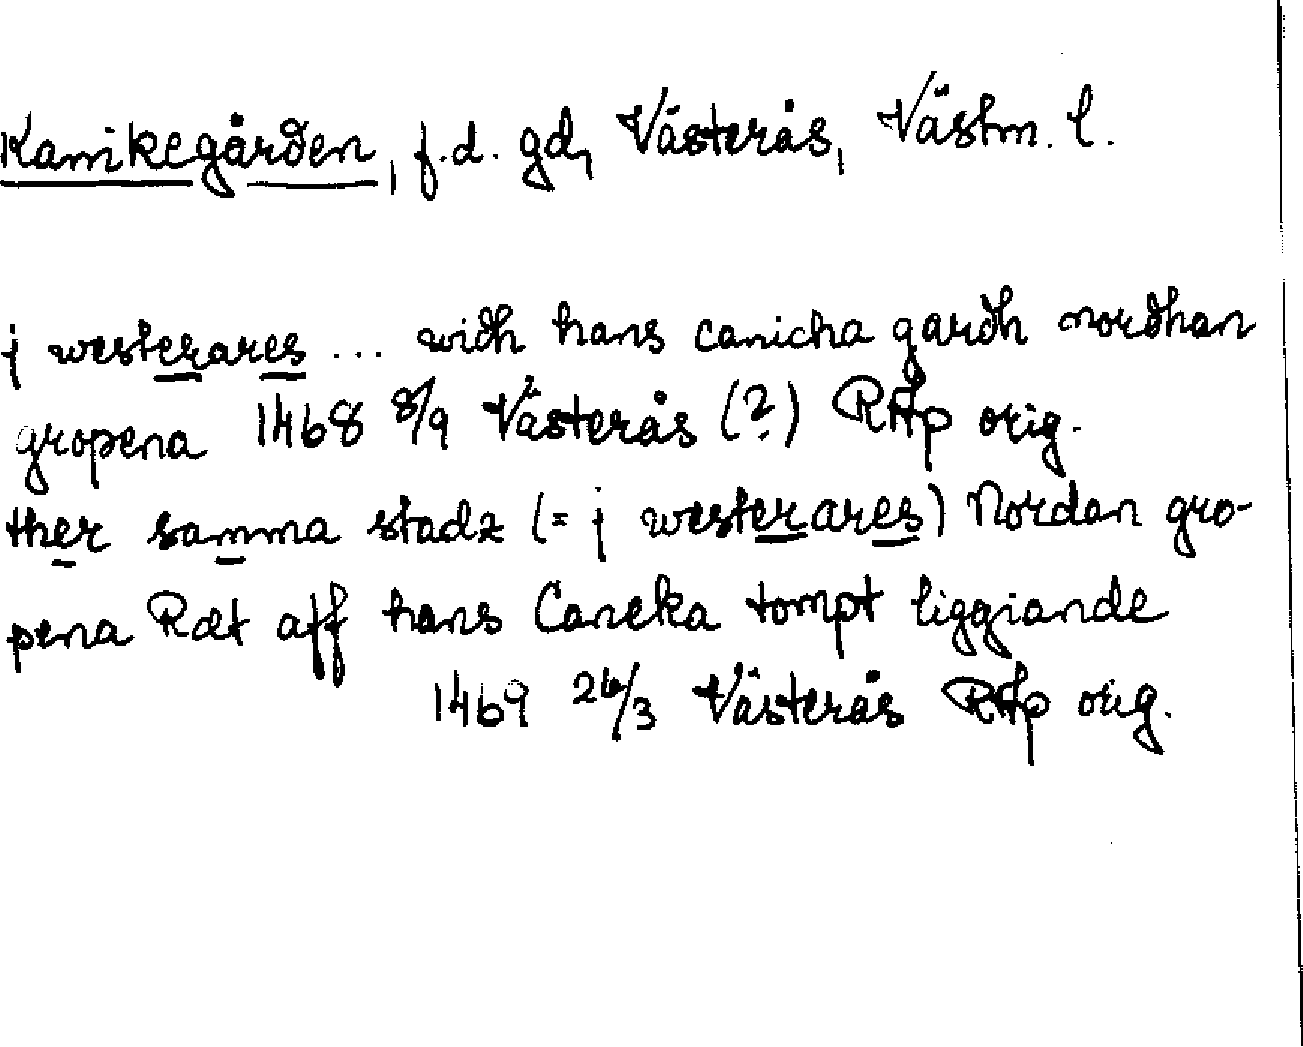 Kanikegården, f.d. gd, Västerås, Västm. l.
j westerares ... widh hans canicha gardh nordhan
gropena 1468 8/9 Västerås (?) RAp orig.
ther samma stadz (= j westerares) Nordan gro-
pena Ræt aff hans Caneka tompt liggiande
1469 26/3 Västerås RAp orig.